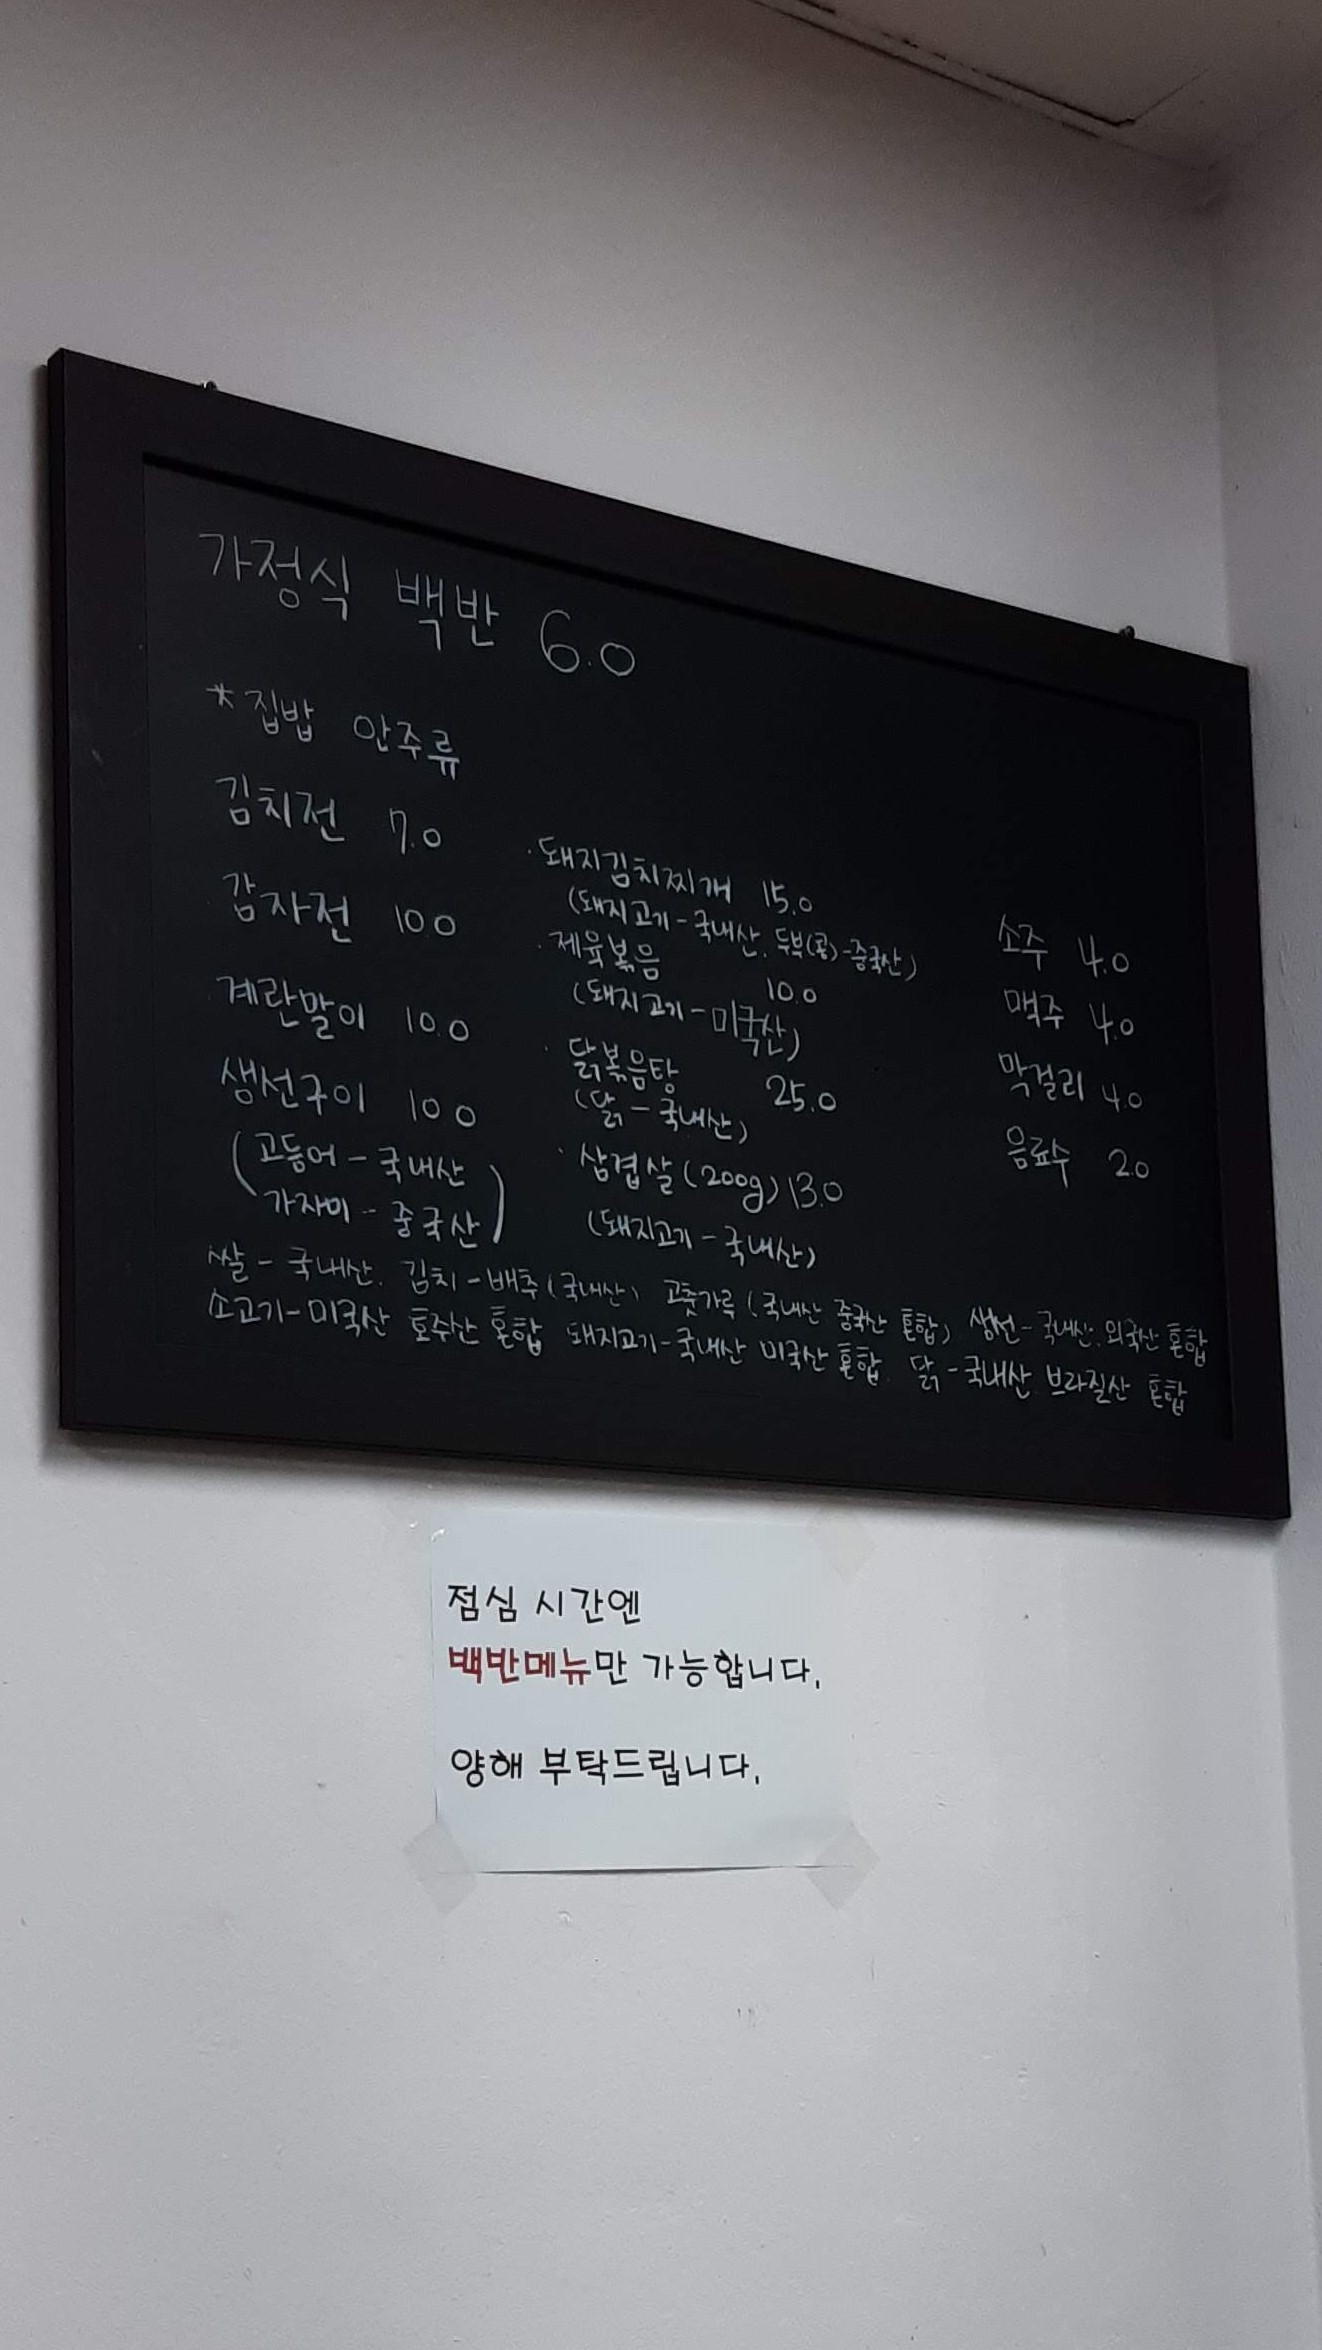 가정식 백반 6.0
*집밥 안주류
김치전 7.0
감자전 10.0
계란말이 10.0
생선구이 10.0
(고등어-국내산
가자미-중국산)
·돼지김치찌개 15.0
(돼지고기-국내산. 두부(콩)-중국산)
·제육볶음 10.0
(돼지고기-미국산)
·닭볶음탕 25.0
(닭-국내산)
·삼겹살(200g) 13.0
(돼지고기-국내산)
소주 4.0
맥주 4.0
막걸리 4.0
음료수 2.0
쌀-국내산. 김치-배추(국내산) 고춧가루(국내산 중국산 혼합) 생선-국내산. 외국산 혼합
소고기-미국산 호주산 혼합 돼지고기-국내산 미국산 혼합. 닭-국내산 브라질산 혼합
점심 시간엔
백반메뉴만 가능합니다.
양해 부탁드립니다.